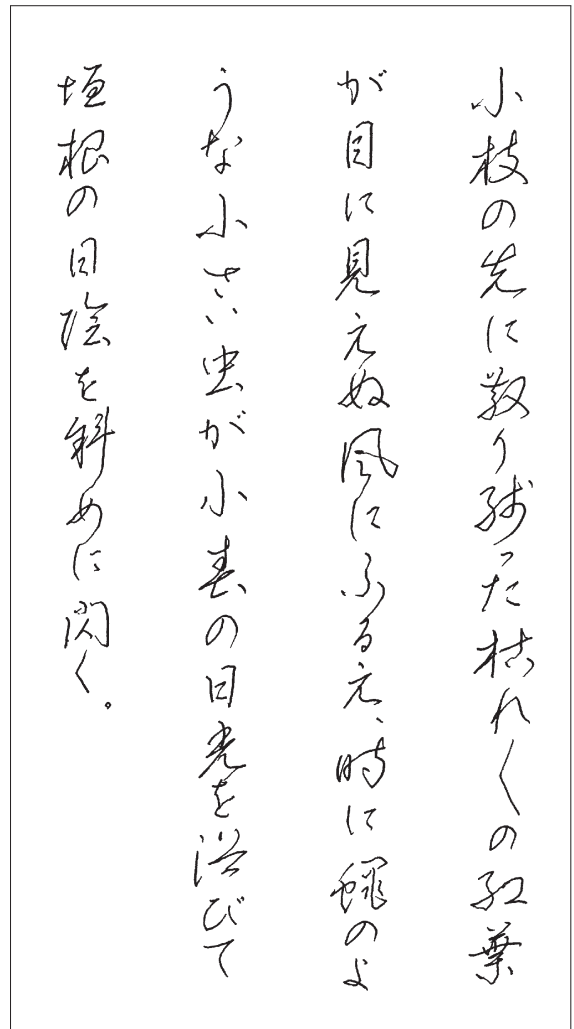 小枝の先に散り残った枯れ〱の紅葉
が目に見えぬ風にふるえ、時に蠅のよ
うな小さい虫が小春の日光を浴びて
垣根の日陰を斜めに閃く。